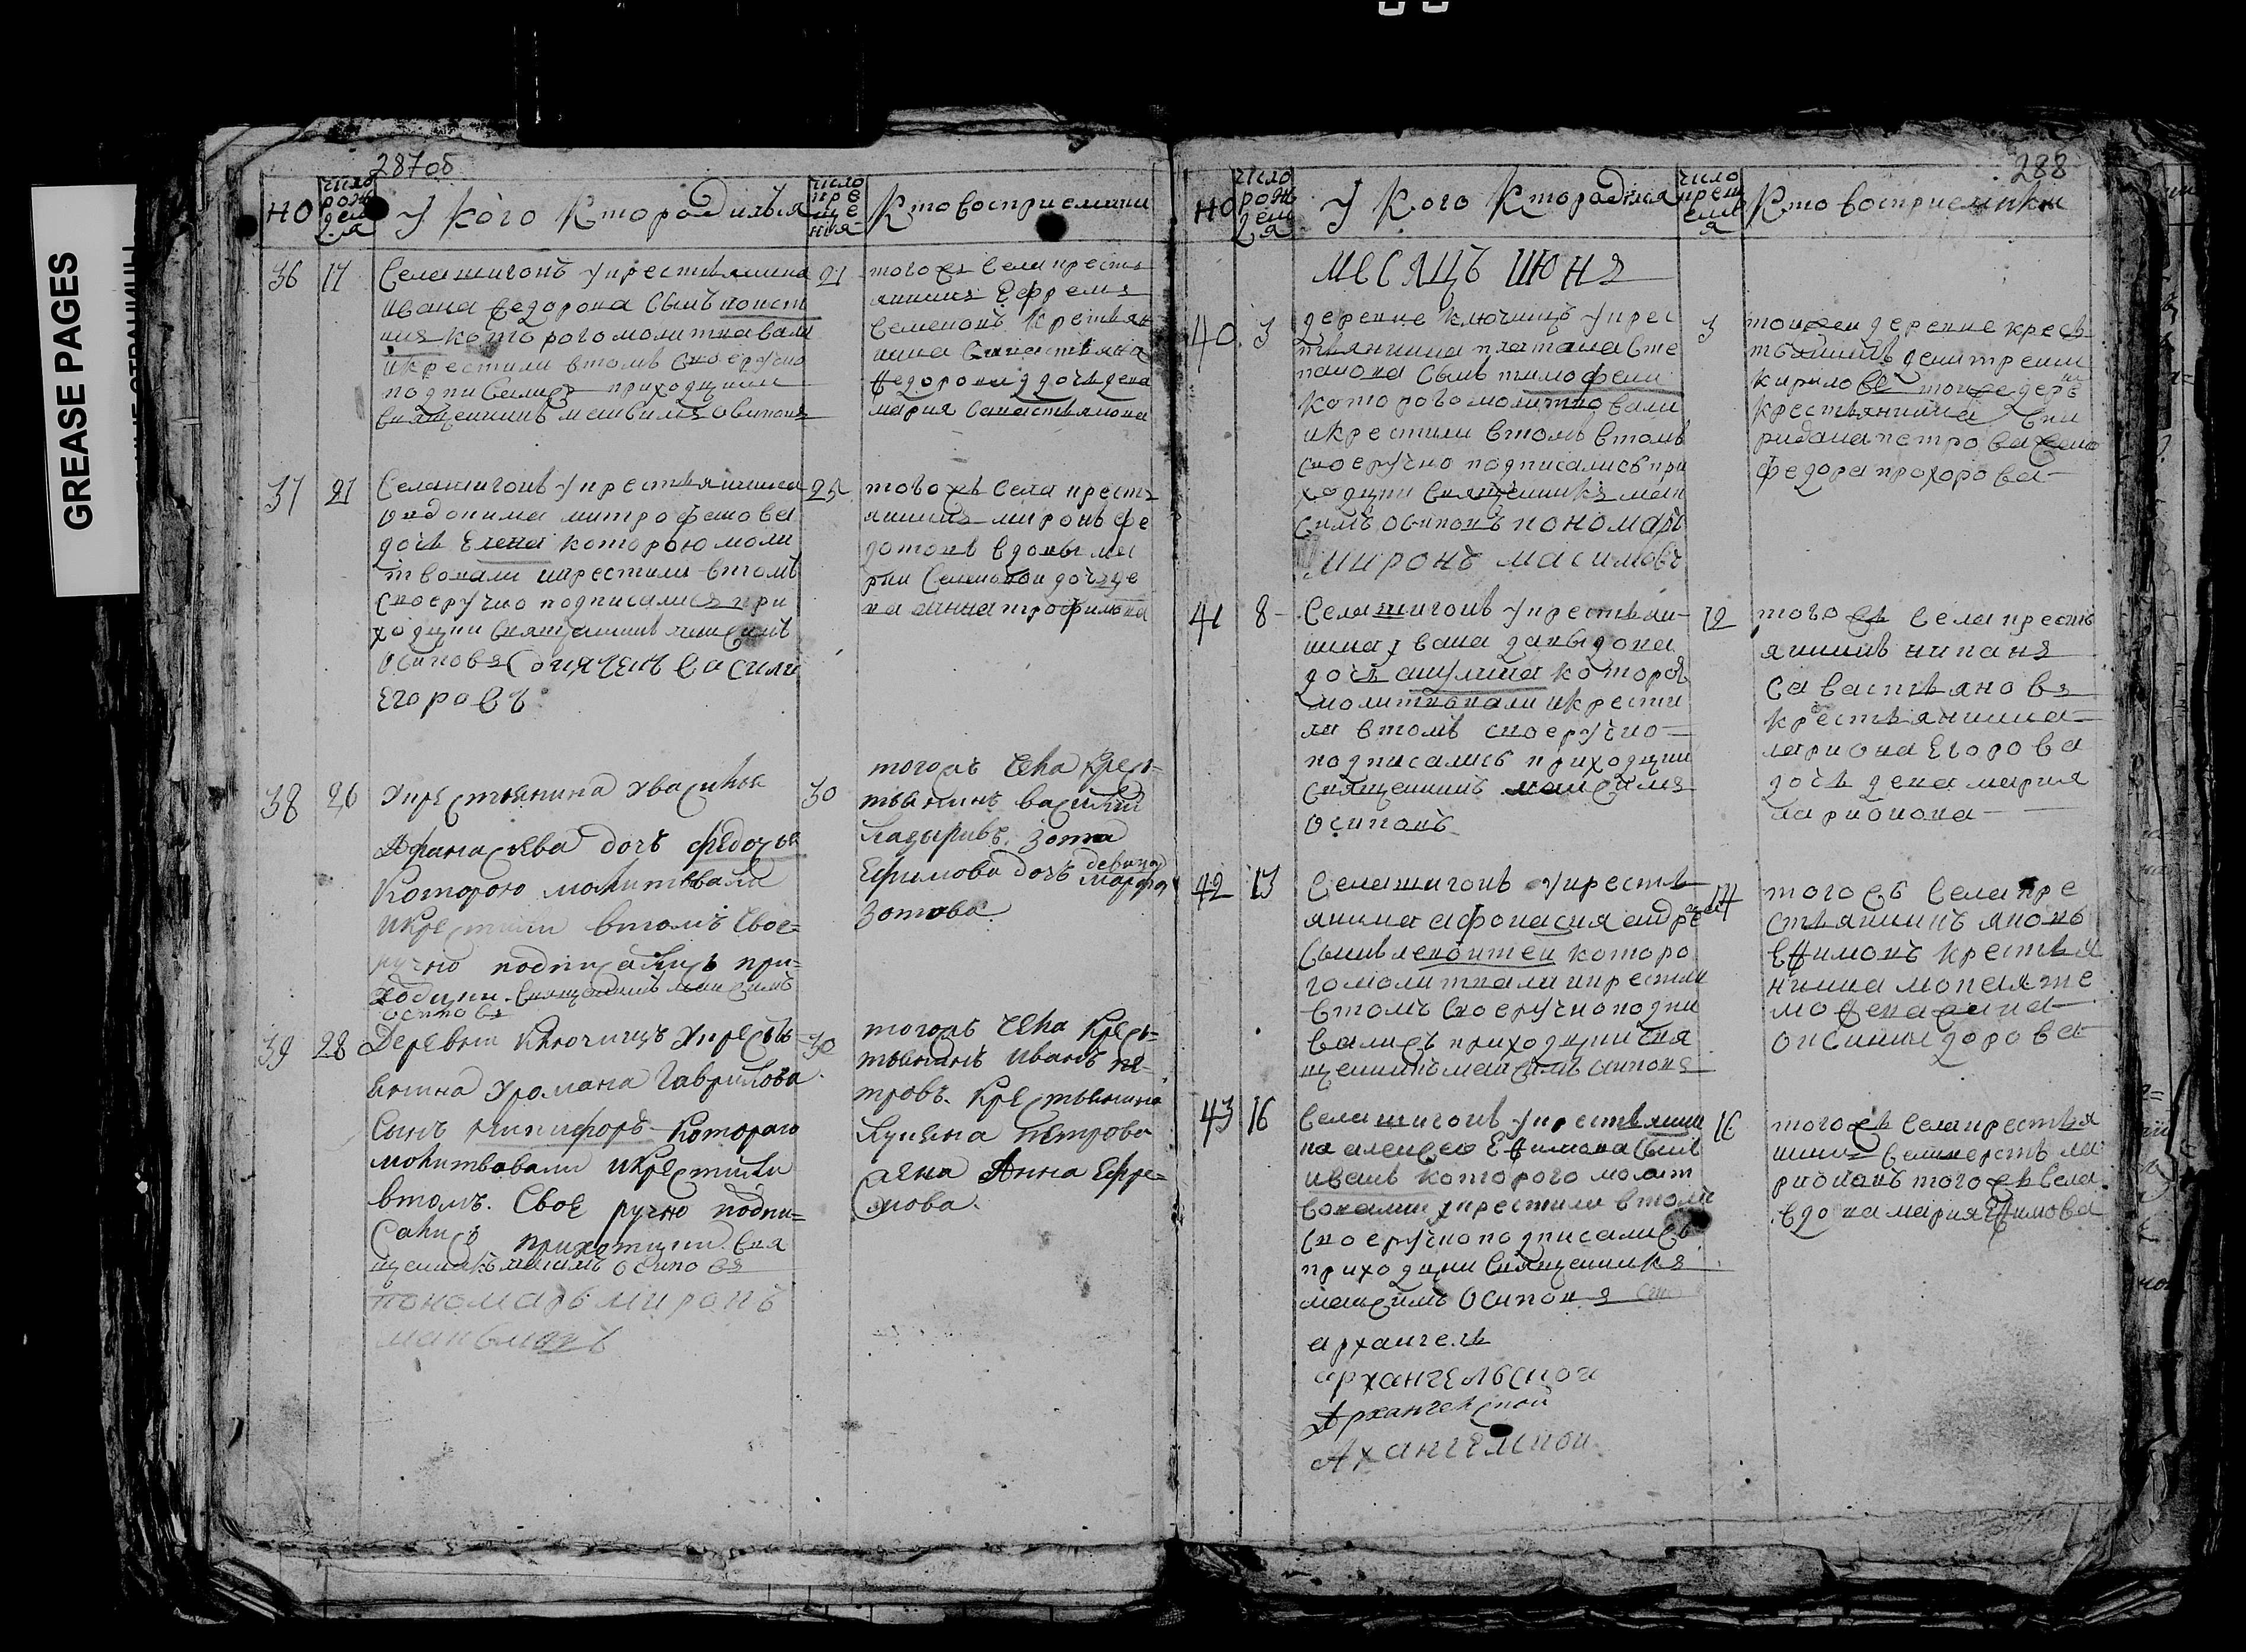 GREASE PAGES
287об
НО
число рождения
У кого кто родился
число крещения
Кто восприемники
36 17
Села шигонъ у крестьянина
ивана федорова сынъ констн
нинъ которого молитвовали
икрестили втомъ своеручно
подписались приходцкии
священникъ максимъ осиповъ
21
тогожъ села кресть
янинъ ефремъ
семеновъ крестьян
нина савастьяна
федорова дочь девка
мария савастьянова
37 21
Села шигонъ у крестьянина
евдокима митрофанова
дочь елена которою моли
твовали икрестили втомъ
своеручно подписались при
ходцки священникъ максимъ
осиповъ дьячекъ василеи
егоровъ
25
тогожъ села кресть
янинъ миронъ фе
дотовъ вдовы ма
рии семеновои дочь де
вка анна трофимова
38 26
у крестьянина увасилья
Афанасьева дочь федосья
которою молитвовали
икрестили втомъ свое=
ручно подписались при=
ходцки. священникъ максимъ
осиповъ
30
тогожъ села кресь=
тьянинъ василий
лазыривъ. зота
Ефимова дочь девица
марфа
зотова.
39 28
Деревни ключищъ укресть
янина уромана гаврилова
сынъ никифоръ которого
молитвовали икрестили
втомъ. свое ручно подпи=
сались приходцкии. свя
щенникъ максимъ осиповъ
пономарь миронъ
максимовъ
30
тогожъ села кресь=
тьянинъ иванъ пе=
тровъ. крестьянина
лукьяна петрова
жена Анна ефре=
мова.
288
НО
число рождения
У кого кто родился
число крещения
Кто восприемники
месяцъ июня
40. 3
деревне ключищъ у крес
тьянина платана сте
панова сынъ тимофеи
которого молитвовали
икрестили втомъ втомъ
своеручно подписались при
ходцки священникъ мак
симъ осиповъ пономарь
миронъ масимовъ
3
тоижеи деревне кресь
тьянинъ дмитреи
кириловъ тоиже дерев
крестьянина спи
ридана петрова жена
федора прохорова
41 8
Села шигонъ у крестьян
нина увана давыдова
дочь акулина которою
молитвовали икрести
ли втомъ своеручно
подписались приходцки
священникъ максимъ
осиповъ
12
тогожъ села кресть
янинъ никанъ
савастьяновъ
крестьянина
лариона егорова
дочь девка мария
ларионова
42 13
Села шигонъ укресть
янина афонасия андрее
сынъ леонтеи которо
го молитвали икрестили
втомъ своеручно подпи
сались приходцки свя
щенникъ максимъ осиповъ
14
тогожъ села кре
стьянинъ яковъ
ефимовъ крестья
43 16
Села шигонъ у крестьянин
на алексею ефимова сынъ
иванъ которого молит
вовали укрестили втомъ
своеручно подписались
приходцки священникъ
максимъ осиповъ
архангелъ
архангельскои
Архангелской
Ахангелскои
16
тогожъ села крестья
нинъ селиверстъ ла
рионовъ тогожъ села
вдова мария ефимова